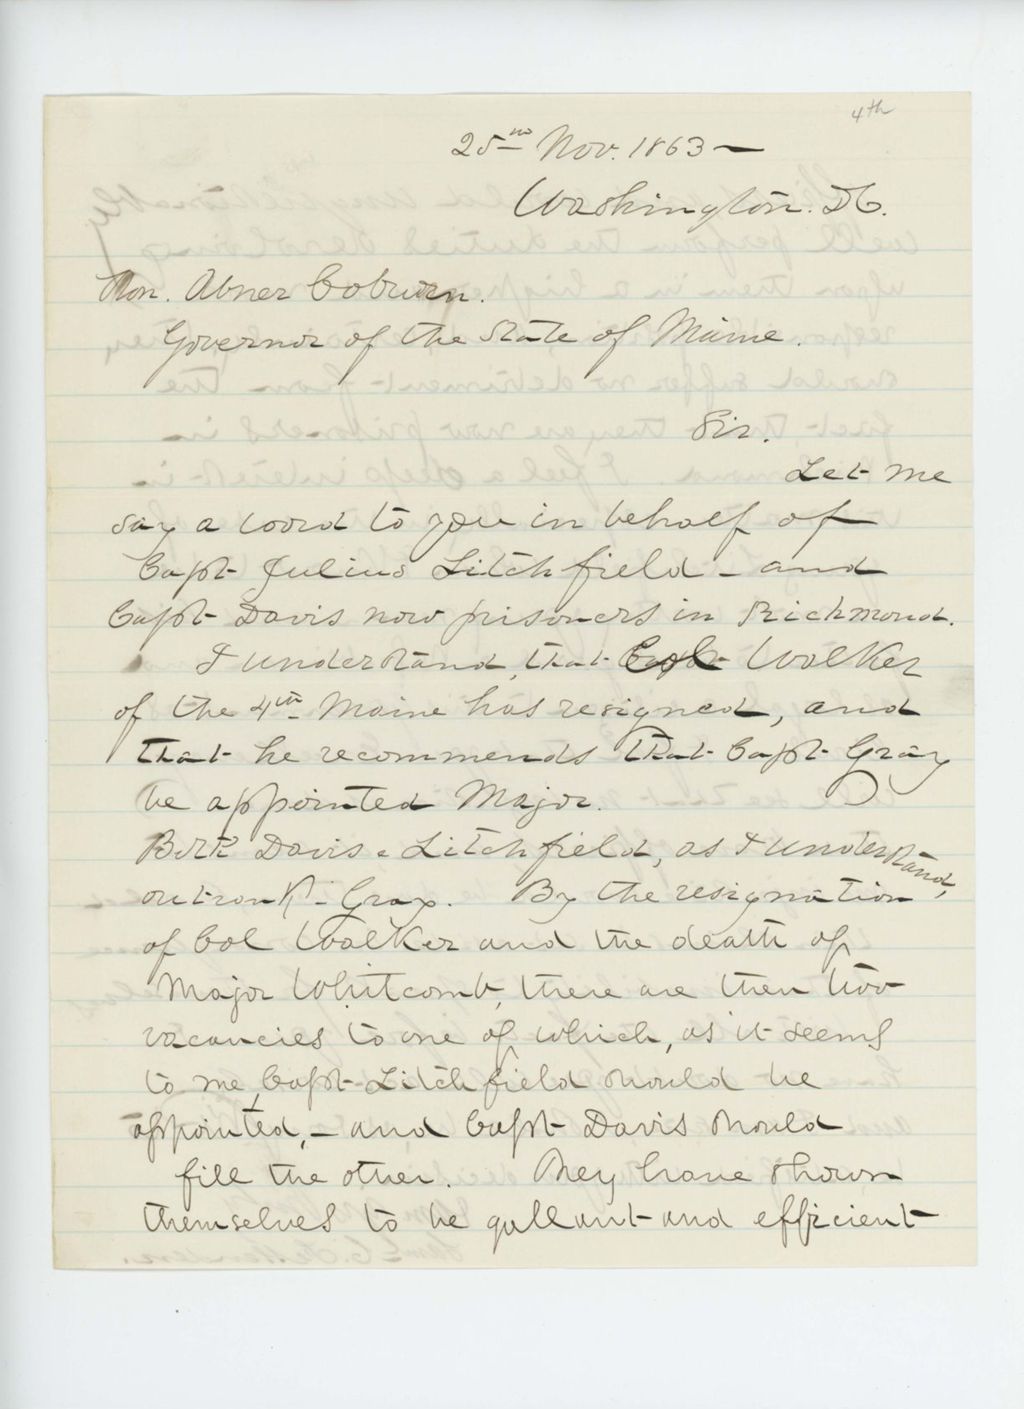 4th
25th Nov. 1863 —
Washington. D.C.
Hon. Abner Coburn.
Governor of the State of Maine.
Sir.
Let me
say a word to you in behalf of
Capt Julius Litchfield - and
Capt Davis now prisoners in Richmond.
I understand, that Col Walker
of the 4th Maine has resigned, and
that he recommends that Capt Gray
be appointed Major.
Both Davis & Litchfield, as I understand,
outrank Gray. By the resignation
of Col Walker and the death of
Major Whitcomb, there are then two
vacancies to one of which, as it seems
to me, Capt Litchfield should be
appointed, - and Capt Davis should
fill the other. They have shown
themselves to be gallant and efficient